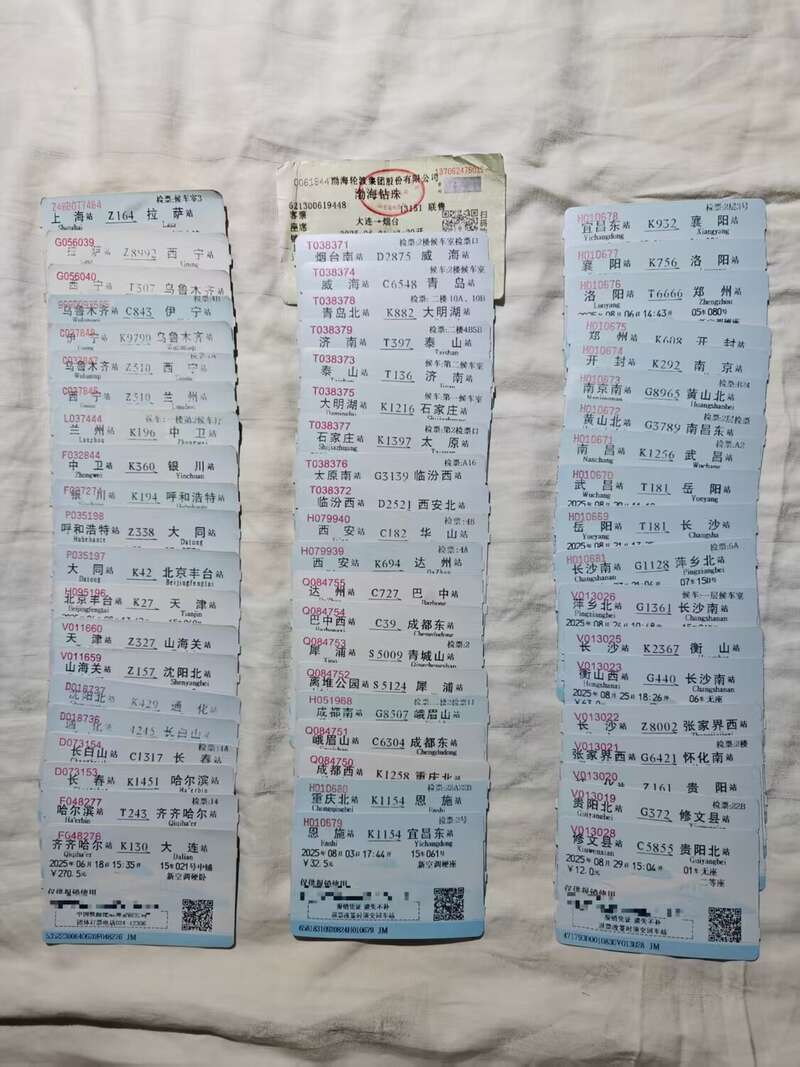 检票:候车室3
上海站 Z164 拉萨站
Shanghai Lasa
G056039
拉萨站 Z8992 西宁站
G056040
西宁站 T307 乌鲁木齐站
检票:4B
乌鲁木齐站 C843 伊宁站
伊宁站 K9790 乌鲁木齐站
乌鲁木齐站 Z310 西宁站
西宁站 Z310 兰州站
L037444
兰州站 K196 中卫站
Lanzhou Zhongwei
F032844
中卫站 K360 银川站
Zhongwei Yinchuan
银川站 K194 呼和浩特站
P035198
呼和浩特站 Z338 大同站
Huhehaote Datong
P035197
大同站 K42 北京丰台站
Datong Beijingfengtai
H095196
北京丰台站 K27 天津站
Beijingfengtai Tianjin
V011660
天津站 Z327 山海关站
V011659
山海关站 Z157 沈阳北站
Shenyangbei
沈阳北站 K429 通化站
D018736
通化站 4245 长白山站
D073154
长白山站 C1317 长春站
D073153
长春站 K1451 哈尔滨站
Ha'erbin
F048277 检票:14
哈尔滨站 T243 齐齐哈尔站
Ha'erbin Qiqiha'er
F048276
齐齐哈尔站 K130 大连站
Qiqiha'er Dalian
2025年06月18日15:35开 15车021号中铺
¥270.5元 新空调硬卧
仅供报销使用
渤海轮渡集团股份有限公司
渤海钻珠
621300619448 联售
客票 大连→烟台
T038371 检票:2楼候车室检票口
烟台南站 D2875 威海站
T038374 候车:2楼候车室
威海站 C6548 青岛站
T038378 检票:二楼10A、10B
青岛北站 K882 大明湖站
T038379 检票:二楼4B5B
济南站 T397 泰山站
T038373 候车:第二候车室
泰山站 T136 济南站
T038375 候车:第一候车室
大明湖站 K1216 石家庄站
T038377 检票:第2检票口
石家庄站 K1397 太原站
T038376 检票:A16
太原南站 G3139 临汾西站
T038372
临汾西站 D2521 西安北站
H079940 检票:4B
西安站 C182 华山站
H079939 检票:4A
西安站 K694 达州站
Q084755
达州站 C727 巴中站
Q084754
巴中西站 C39 成都东站
Q084753 检票:2
犀浦站 S5009 青城山站
Q084752
离堆公园站 S5124 犀浦站
H051968
成都南站 G8507 峨眉山站
Q084751
峨眉山站 C6304 成都东站
Q084750
成都西站 K1258 重庆北站
H010680
重庆北站 K1154 恩施站
Chongqingbei Enshi
H010679 检票:2号
恩施站 K1154 宜昌东站
Enshi Yichangdong
2025年08月03日17:44开 15车061号
¥32.5元 新空调硬座
仅供报销使用
报销凭证 遗失不补
退票改签时须交回车站
H010678 检票:2层3号
宜昌东站 K932 襄阳站
Yichangdong Xiangyang
H010677
襄阳站 K756 洛阳站
H010676
洛阳站 T6666 郑州站
Luoyang Zhengzhou
2025年08月06日14:43开 05车080号
H010675
郑州站 K608 开封站
H010674
开封站 K292 南京站
H010673
南京南站 G8965 黄山北站
Huangshanbei
H010672
黄山北站 G3789 南昌东站
H010671 检票:A2
南昌站 K1256 武昌站
Nanchang Wuchang
H010670
武昌站 T181 岳阳站
Wuchang Yueyang
H010669
岳阳站 T181 长沙站
Yueyang Changsha
H010681
长沙南站 G1128 萍乡北站
Changshanan Pingxiangbei
V013026 候车:一层候车室
萍乡北站 G1361 长沙南站
Pingxiangbei Changshanan
V013025
长沙站 K2367 衡山站
V013023
衡山西站 G440 长沙南站
Hengshanxi Changshanan
2025年08月25日18:26开 06车无座
V013022
长沙站 Z8002 张家界西站
V013021
张家界西站 G6421 怀化南站
V013020
Z161 贵阳站
V013019 检票:22B
贵阳北站 G372 修文县站
V013028
修文县站 C5855 贵阳北站
Xiuwenxian Guiyangbei
2025年08月29日15:04开 01车无座
¥12.0元 二等座
仅供报销使用
报销凭证 遗失不补
退票改签时须交回车站